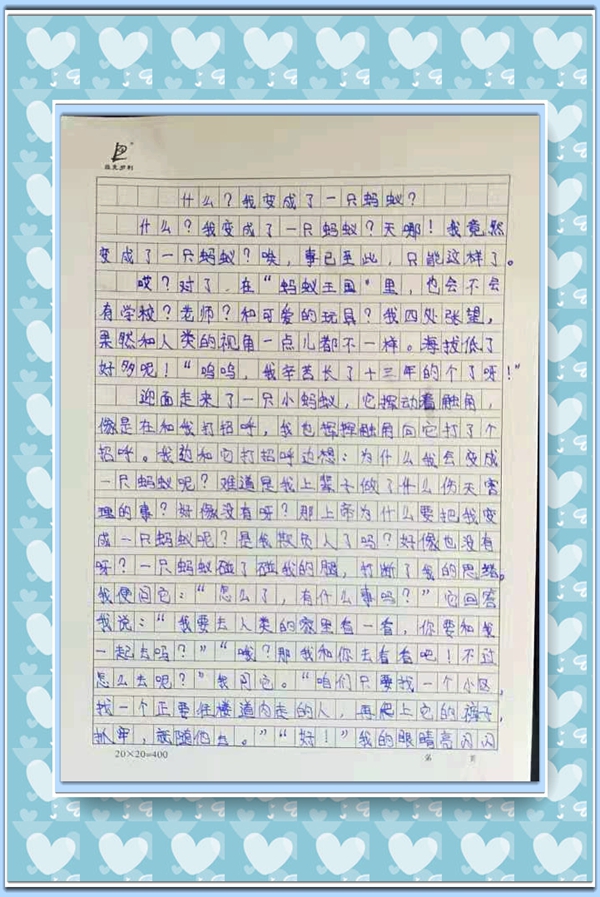 什么?我变成了一只蚂蚁?
什么?我变成了一只蚂蚁?天哪!我竟然
变成了一只蚂蚁?唉,事已至此,只能这样了。
哎?对了,在“蚂蚁王国”里,也会不会
有学校?老师?和可爱的玩具?我四处张望,
果然和人类的视角一点儿都不一样。海拔低了
好多呢!“呜呜,我辛苦长了十三年的个了呀!”
迎面走来了一只小蚂蚁,它挥动着触角,
像是在和我打招呼,我也挥挥触角向它打了个
招呼。我边和它打招呼边想:为什么我会变成
一只蚂蚁呢?难道是我上辈子做了什么伤天害
理的事?好像没有呀?那上帝为什么要把我变
成一只蚂蚁呢?是我欺负人了吗?好像也没有
呀?一只蚂蚁碰了碰我的腿,打断了我的思绪。
我便问它:“怎么了,有什么事吗?”它回答
我说:“我要去人类的家里看一看,你要和我
一起去吗?”“哦?那我和你去看看吧!不过
怎么去呢?”我问它。“咱们只要找一个小区,
找一个正要往楼道内走的人,再爬上它的裤子,
抓牢,就随他去。”“好!”我的眼睛亮闪闪
20×20=400
第 页